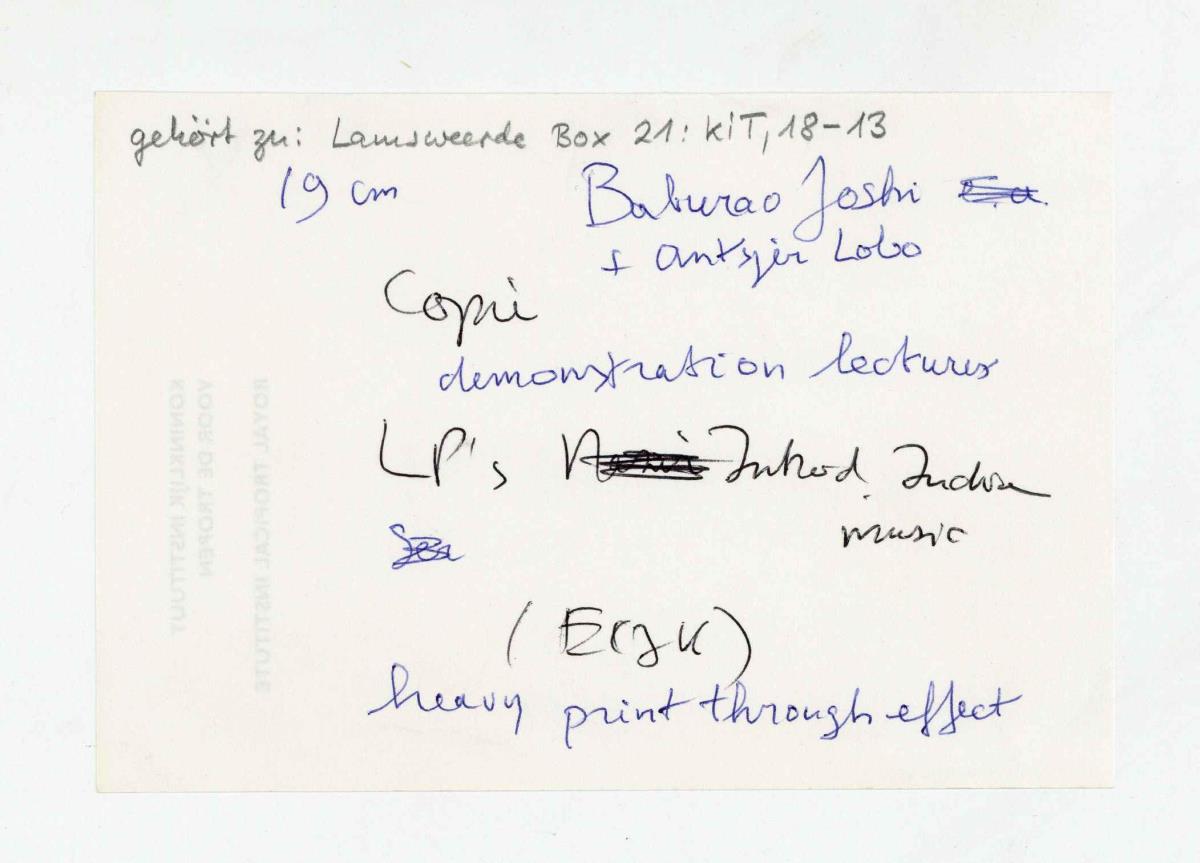 gehört zu: Lamsweerde Box 21: KiT, 18-13
19 cm Baburao Joshi
+ Antsjer Lobo
Copie
demonstration lectures
LP's Introd. Indian
music
(EcJK)
heavy print through effect
KONINKLIJK INSTITUUT
VOOR DE TROPEN
ROYAL TROPICAL INSTITUTE